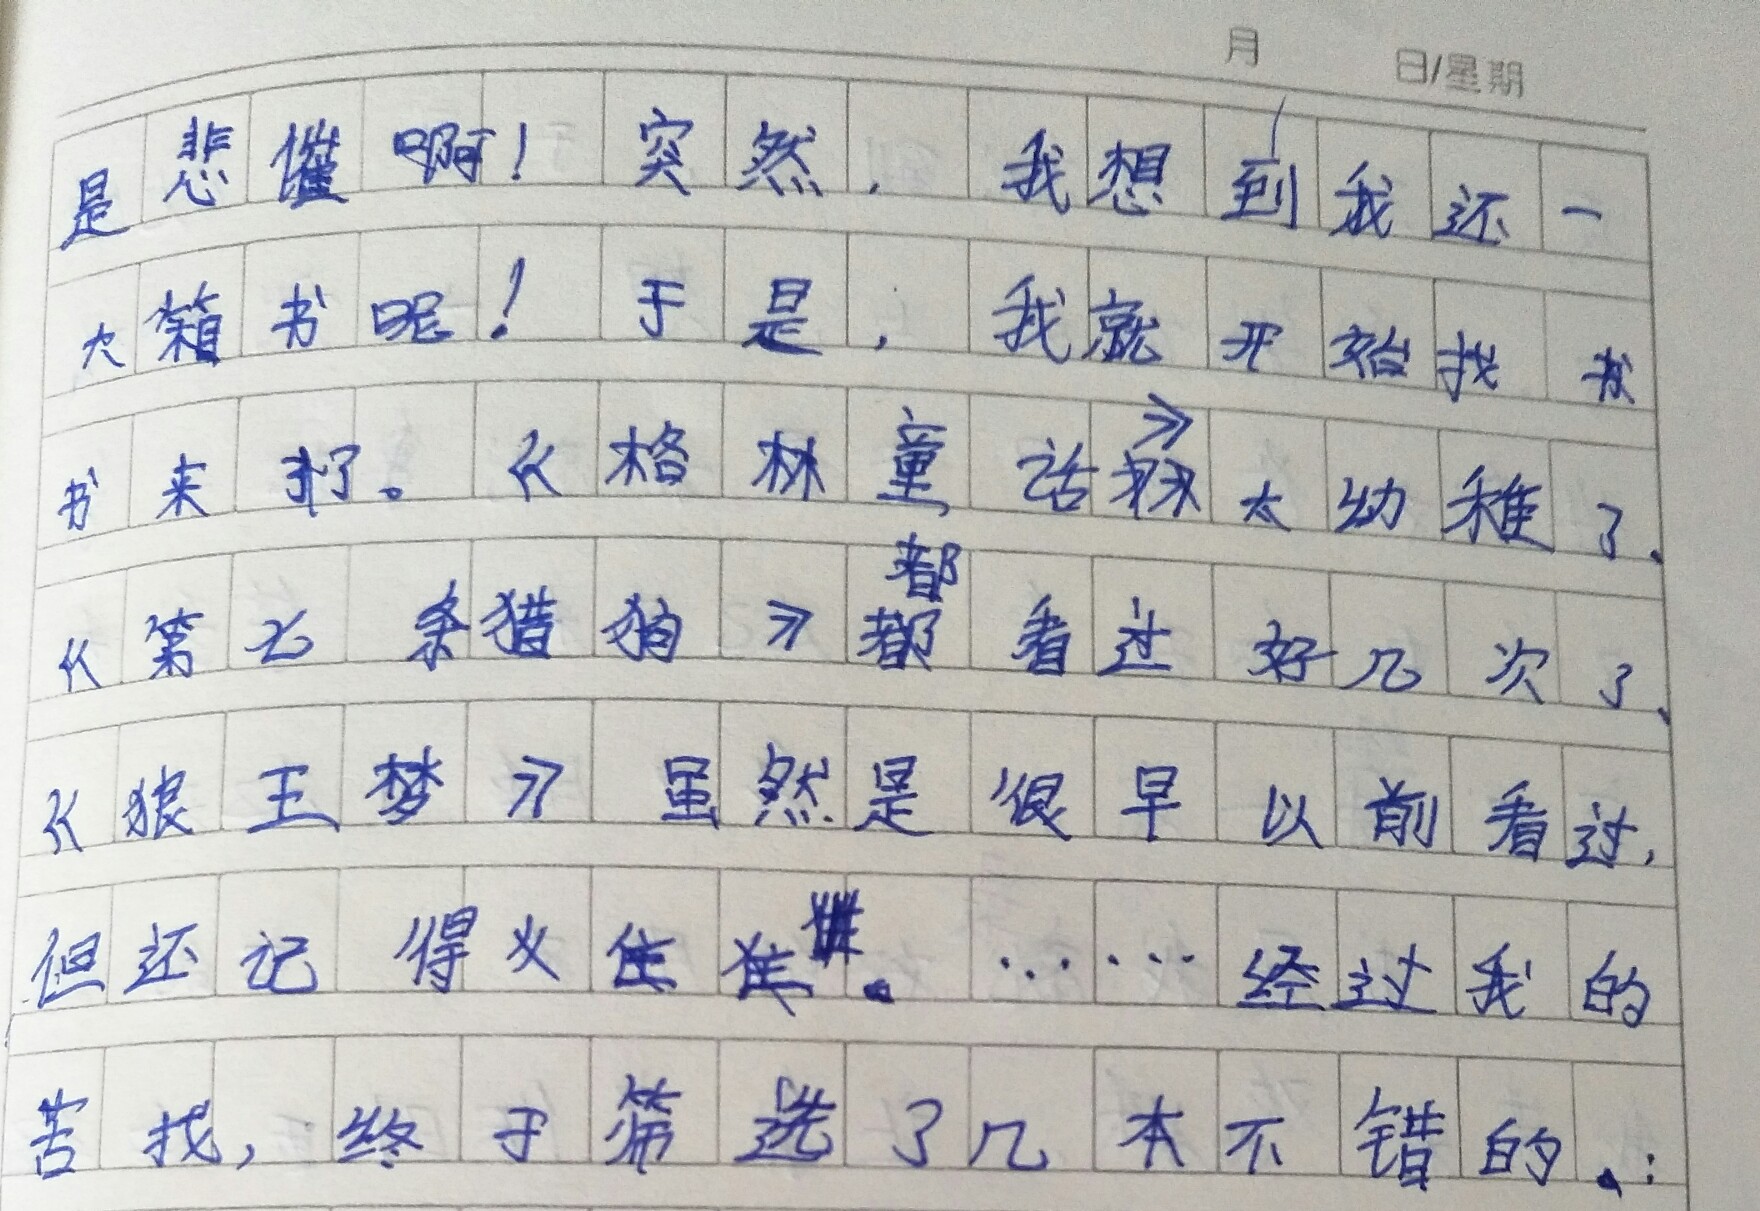 月 日/星期
是悲催啊！突然，我想到我还一
大箱书呢！于是，我就开始找书
书来了。《格林童话》太幼稚了，
《第七条猎狗》都看过好几次了，
《狼王梦》虽然是很早以前看过，
但还记得。……经过我的
苦找，终于筛选了几本不错的。：